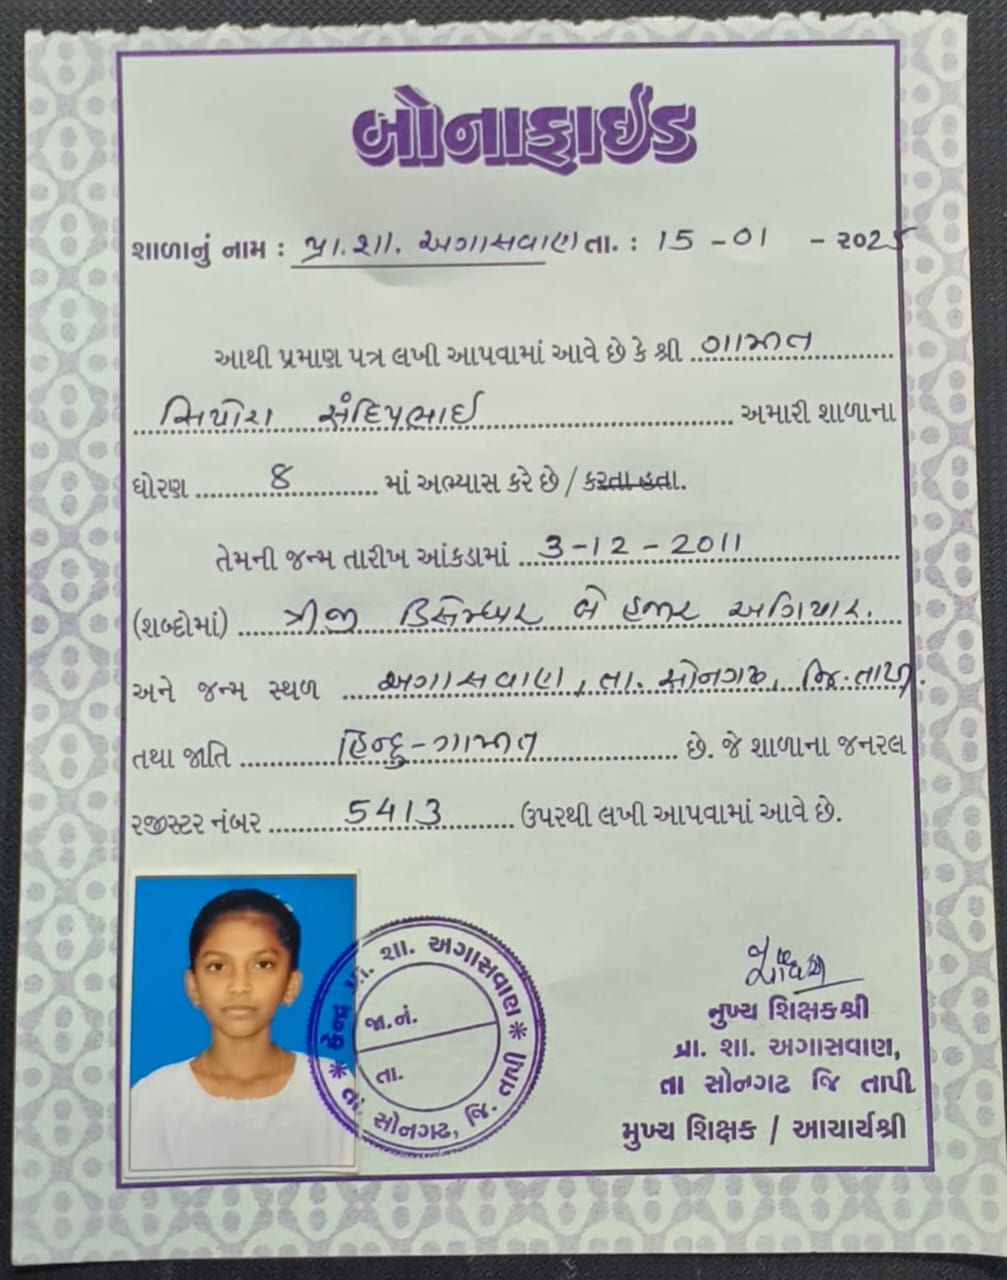 બોનાફાઈડ
શાળાનું નામ : પ્રા.શા. અગાસવાણ તા. : 15 -01 - ૨૦25
આથી પ્રમાણ પત્ર લખી આપવામાં આવે છે કે શ્રી ગામીત
સિપોરા સંદિપભાઈ અમારી શાળાના
ધોરણ 8 માં અભ્યાસ કરે છે / કરતા હતા.
તેમની જન્મ તારીખ આંકડામાં 3-12-2011
(શબ્દોમાં) ત્રીજી ડિસેમ્બર બે હજાર અગિયાર.
અને જન્મ સ્થળ અગાસવાણ, તા. સોનગઢ, જિ. તાપી.
તથા જાતિ હિન્દુ-ગામીત છે. જે શાળાના જનરલ
રજીસ્ટર નંબર 5413 ઉપરથી લખી આપવામાં આવે છે.
કેન્દ્ર પ્રા. શા. અગાસવાણ
જા.નં.
તા.
તા. સોનગઢ, જિ. તાપી
મુખ્ય શિક્ષકશ્રી
પ્રા. શા. અગાસવાણ,
તા સોનગઢ જિ તાપી
મુખ્ય શિક્ષક / આચાર્યશ્રી